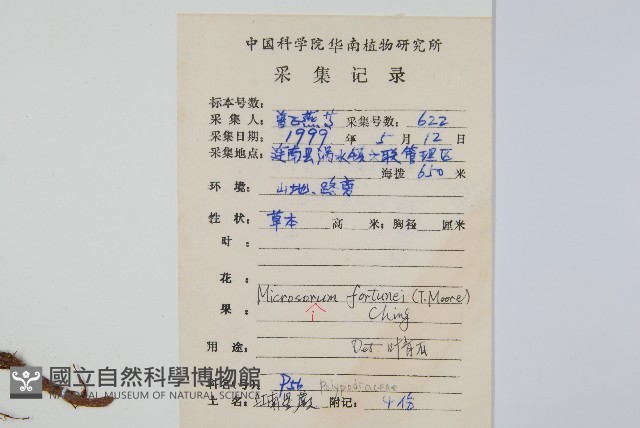 中国科学院华南植物研究所
采集记录
标本号数:
采集人: 曾飞燕等 采集号数: 622
采集日期: 1999 年 5 月 12 日
采集地点: 连南县涡水镇六联管理区
海拨 650 米
环境: 山地、路旁
性状: 草本 高 米; 胸径 厘米
叶
花:
Microsorum fortunei (T. Moore)
果: i Ching
用途: Det. 叶育石
科名(号)别 P56 Polypodiaceae
土名: 江南星蕨 附记: 4份
國立自然科學博物館
NATIONAL MUSEUM OF NATURAL SCIENCE